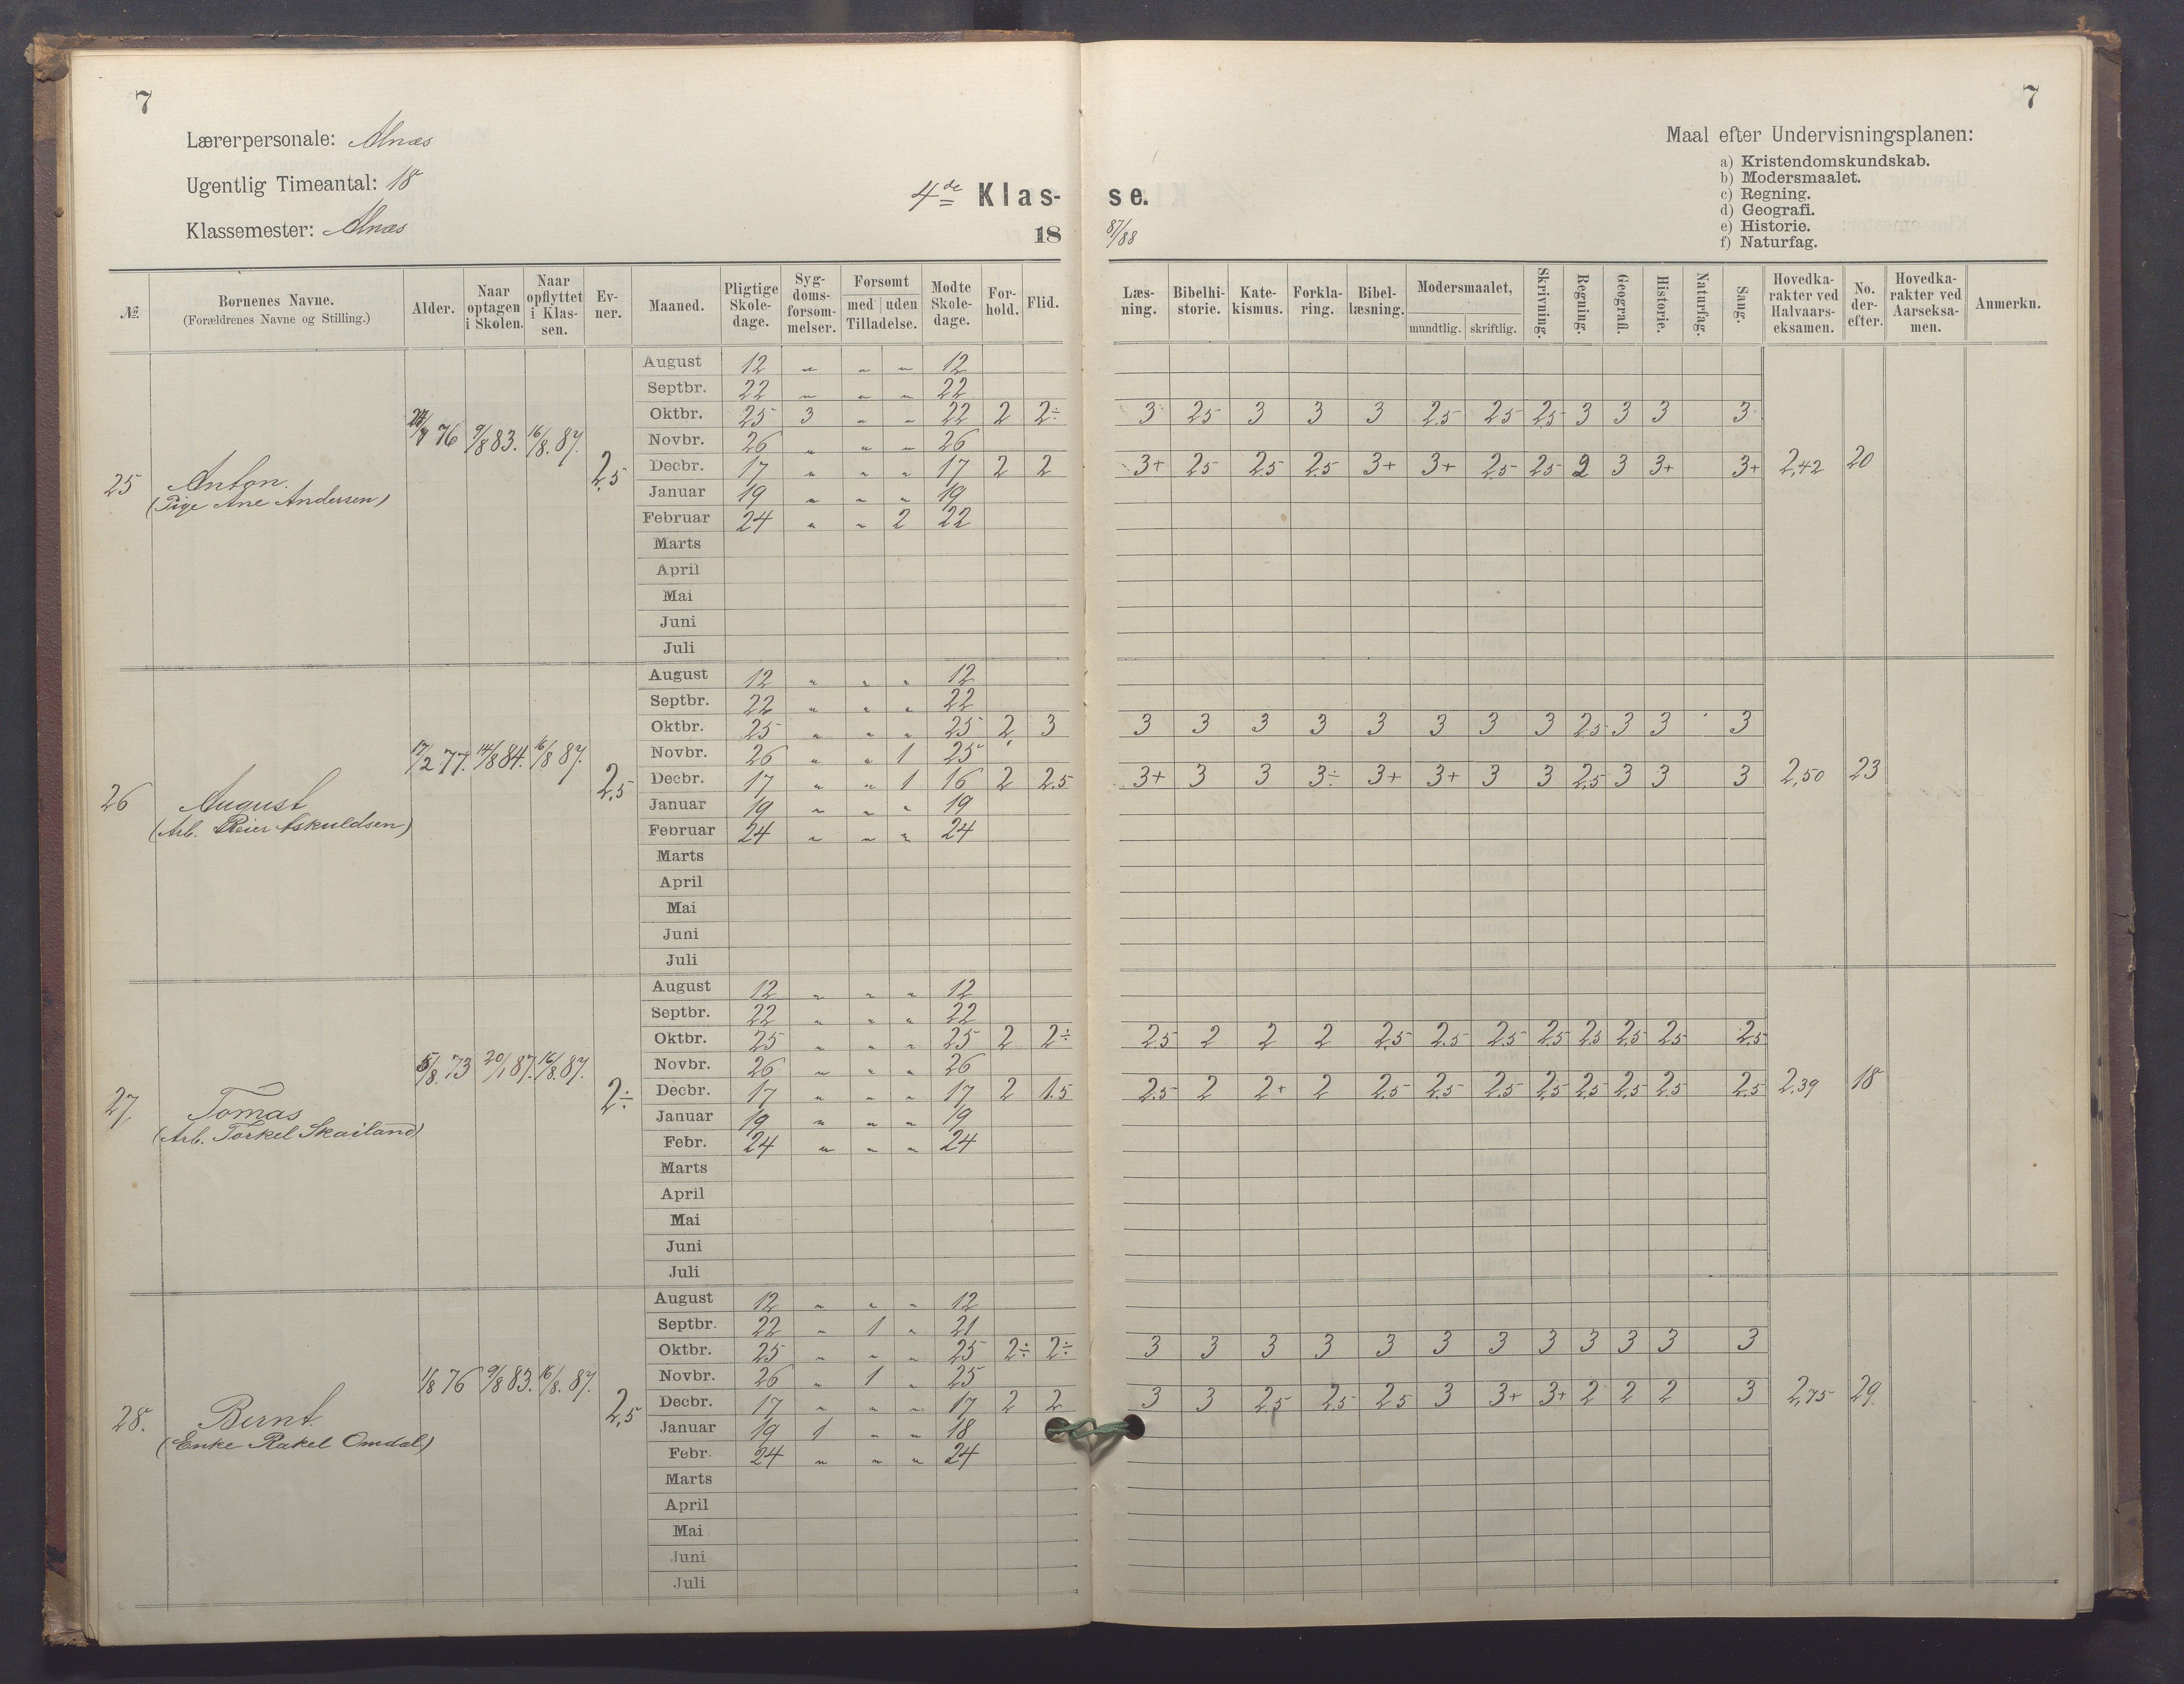 7
7
Lærerpersonale: Alnæs
Ugentlig Timeantal: 18
Klassemester: Alnæs
4de Klas-
se.
18
87/88
Maal efter Undervisningsplanen:
a) Kristendomskundskab.
b) Modersmaalet.
c) Regning.
d) Geografi.
e) Historie.
f) Naturfag.
№ | Børnenes Navne. (Forældrenes Navne og Stilling.) | Alder. | Naar optagen i Skolen. | Naar opflyttet i Klassen. | Evner. | Maaned. | Pligtige Skoledage. | Sygdomsforsømmelser. | Forsømt med uden Tilladelse. | Mødte Skoledage. | Forhold. | Flid. | Læsning. | Bibelhistorie. | Katekismus. | Forklaring. | Bibellæsning. | Modersmaalet, mundtlig. skriftlig. | Skrivning. | Regning. | Geografi. | Historie. | Naturfag. | Sang. | Hovedkarakter ved Halvaarseksamen. | No. derefter. | Hovedkarakter ved Aarseksamen. | Anmerkn.
25 Anton. 76 9/8 83. 16/8. 87. 2,5
(Pige Ane Andersen)
August 12 " " " 12
Septbr. 22 " " " 22
Oktbr. 25 3 " " 22 2 2÷ 3 2,5 3 3 3 2.5 2.5 2.5 3 3 3 3
Novbr. 26 " " " 26
Decbr. 17 " " " 17 2 2 3+ 2,5 2,5 2,5 3+ 3+ 2.5 2.5 2 3 3+ 3+ 2,42 20
Januar 19 " " " 19
Februar 24 " " 2 22
Marts
April
Mai
Juni
Juli
26 August 17/2 77. 14/8 84. 16/8 87. 2,5
(Arb. Reier Askuldsen)
August 12 " " " 12
Septbr. 22 " " " 22
Oktbr. 25 " " " 25 2 3 3 3 3 3 3 3 3 3 2,5 3 3 3
Novbr. 26 " " 1 25
Decbr. 17 " " 1 16 2 2.5 3+ 3 3 3÷ 3+ 3+ 3 3 2,5 3 3 3 2,50 23
Januar 19 " " " 19
Februar 24 " " " 24
Marts
April
Mai
Juni
Juli
27 Tomas 73 20/1 87. 16/8. 87. 2÷
(Arb. Torkel Skailand)
August 12 " " " 12
Septbr. 22 " " " 22
Oktbr. 25 " " " 25 2 2÷ 2.5 2 2 2 2,5 2.5 2.5 2.5 2.5 2.5 2.5 2.5
Novbr. 26 " " " 26
Decbr. 17 " " " 17 2 1.5 2.5 2 2+ 2 2.5 2.5 2.5 2.5 2.5 2.5 2.5 2.5 2,39 18
Januar 19 " " " 19
Febr. 24 " " " 24
Marts
April
Mai
Juni
Juli
28. Bernt. 1/8 76 9/8 83. 16/8. 87. 2,5
(Enke Rakel Omdal)
August 12 " " " 12
Septbr. 22 " 1 " 21
Oktbr. 25 " " " 25 2÷ 2÷ 3 3 3 3 3 3 3 3 3 3 3 3
Novbr. 26 " 1 " 25
Decbr. 17 " " " 17 2 2 3 3 2.5 2.5 2.5 3 3+ 3+ 2 2 2 3 2,75 29.
Januar 19 1 " " 18
Febr. 24 " " " 24
Marts
April
Mai
Juni
Juli